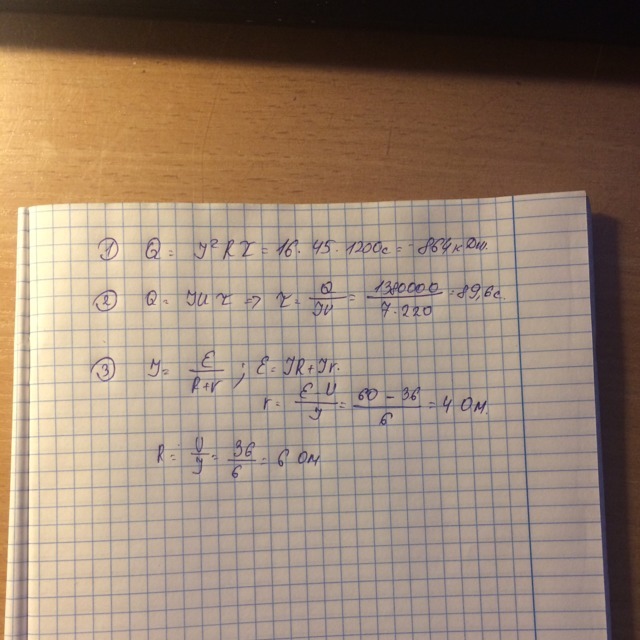 ① Q = I²Rτ = 16 · 45 · 1200с = 864кДж.
② Q = IUτ ⇒ τ = Q/IU = 1380000/7·220 = 89,6с.
③ I = ℰ/R+r ; ℰ = IR + Ir.
r = ℰ-U/I = 60 - 36/6 = 4 Ом.
R = U/I = 36/6 = 6 Ом